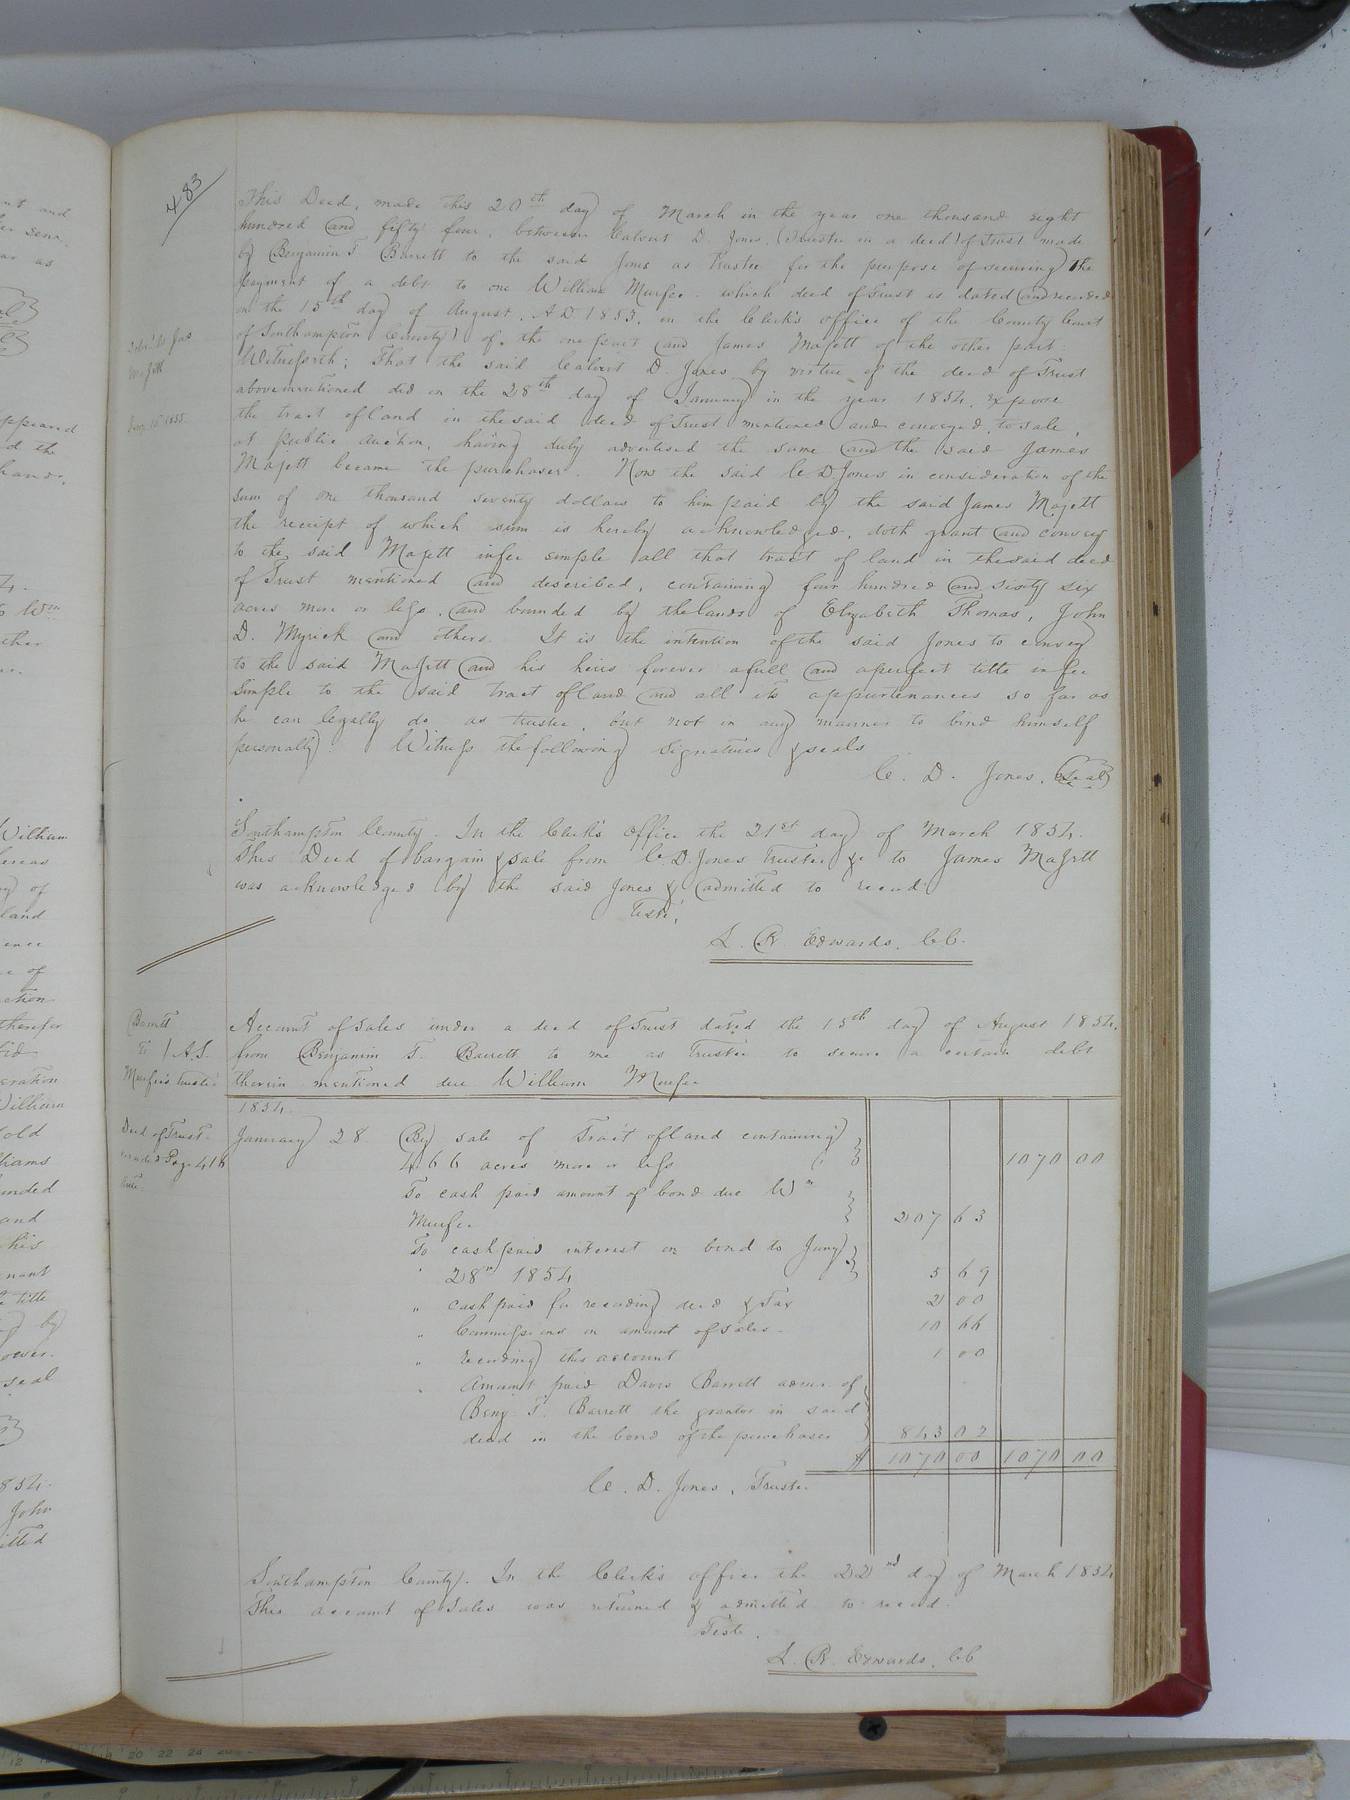 483
This Deed, made this 20th day of March in the year one thousand eight
hundred and fifty four, between Calvert D. Jones, (Trustee in a deed of Trust made
by Benjamin T Barrett to the said Jones as Trustee for the purpose of securing the
payment of a debt to one William Murfee which deed of Trust is dated and recorded
on the 15th day of August, A D 1853, in the Clerk's office of the County Court
of Southampton County) of the one part and James Majett of the other part
Witnesseth; That the said Calvert D. Jones by virtue of the deed of Trust
abovementioned did on the 28th day of January in the year 1854, expose
the tract of land in the said deed of Trust mentioned and conveyed, to sale,
at public auction, having duly advertised the same and the said James
Majett became the purchaser. Now the said C. D Jones in consideration of the
sum of one thousand seventy dollars to him paid by the said James Majett
the receipt of which sum is hereby acknowledged, doth grant and convey
to the said Majett in fee simple all that tract of land in the said deed
of Trust mentioned and described, containing four hundred and sixty six
acres more or less, and bounded by the lands of Elizabeth Thomas, John
D. Myrick and others. It is the intention of the said Jones to convey
to the said Majett and his heirs forever a full and a perfect title in fee
simple to the said tract of land and all its appurtenances so far as
he can legally do as trustee, but not in any manner to bind himself
personally. Witness the following signatures & seals
C. D. Jones. Seal
Southampton County. In the Clerk's Office the 21st day of March 1854.
This Deed of bargain & sale from C. D. Jones Trustee &c to James Majett
was acknowledged by the said Jones & admitted to record
Teste,
L. R. Edwards, CC.
Deliv'd to Jas
Majett
1855
Barrett
To / A.S.
Murfee's trustee
Deed of Trust
recorded Page 416
Account of sales under a deed of Trust dated the 15th day of August 1854,
from Benjamin T. Barrett to me as Trustee to secure a certain debt
therein mentioned due William Murfee
1854
January 28 By sale of Tract of land containing
466 acres more or less 1070 00
To cash paid amount of bond due Wm
Murfee 207 63
To cash paid interest on bond to Jany
" 28th 1854 5 69
" cash paid for recording deed & Tax 2 00
" Commissions on amount of sales 10 66
" recording this account 1 00
" Amount paid Davis Barrett admr of
Benj. T. Barrett the grantor in said
deed in the bond of the purchaser 843 02
$ 1070 00 1070 00
C. D. Jones, Trustee
Southampton County. In the Clerk's office the 22nd day of March 1854
This account of Sales was returned & admitted to record.
Teste.
L. R. Edwards, CC